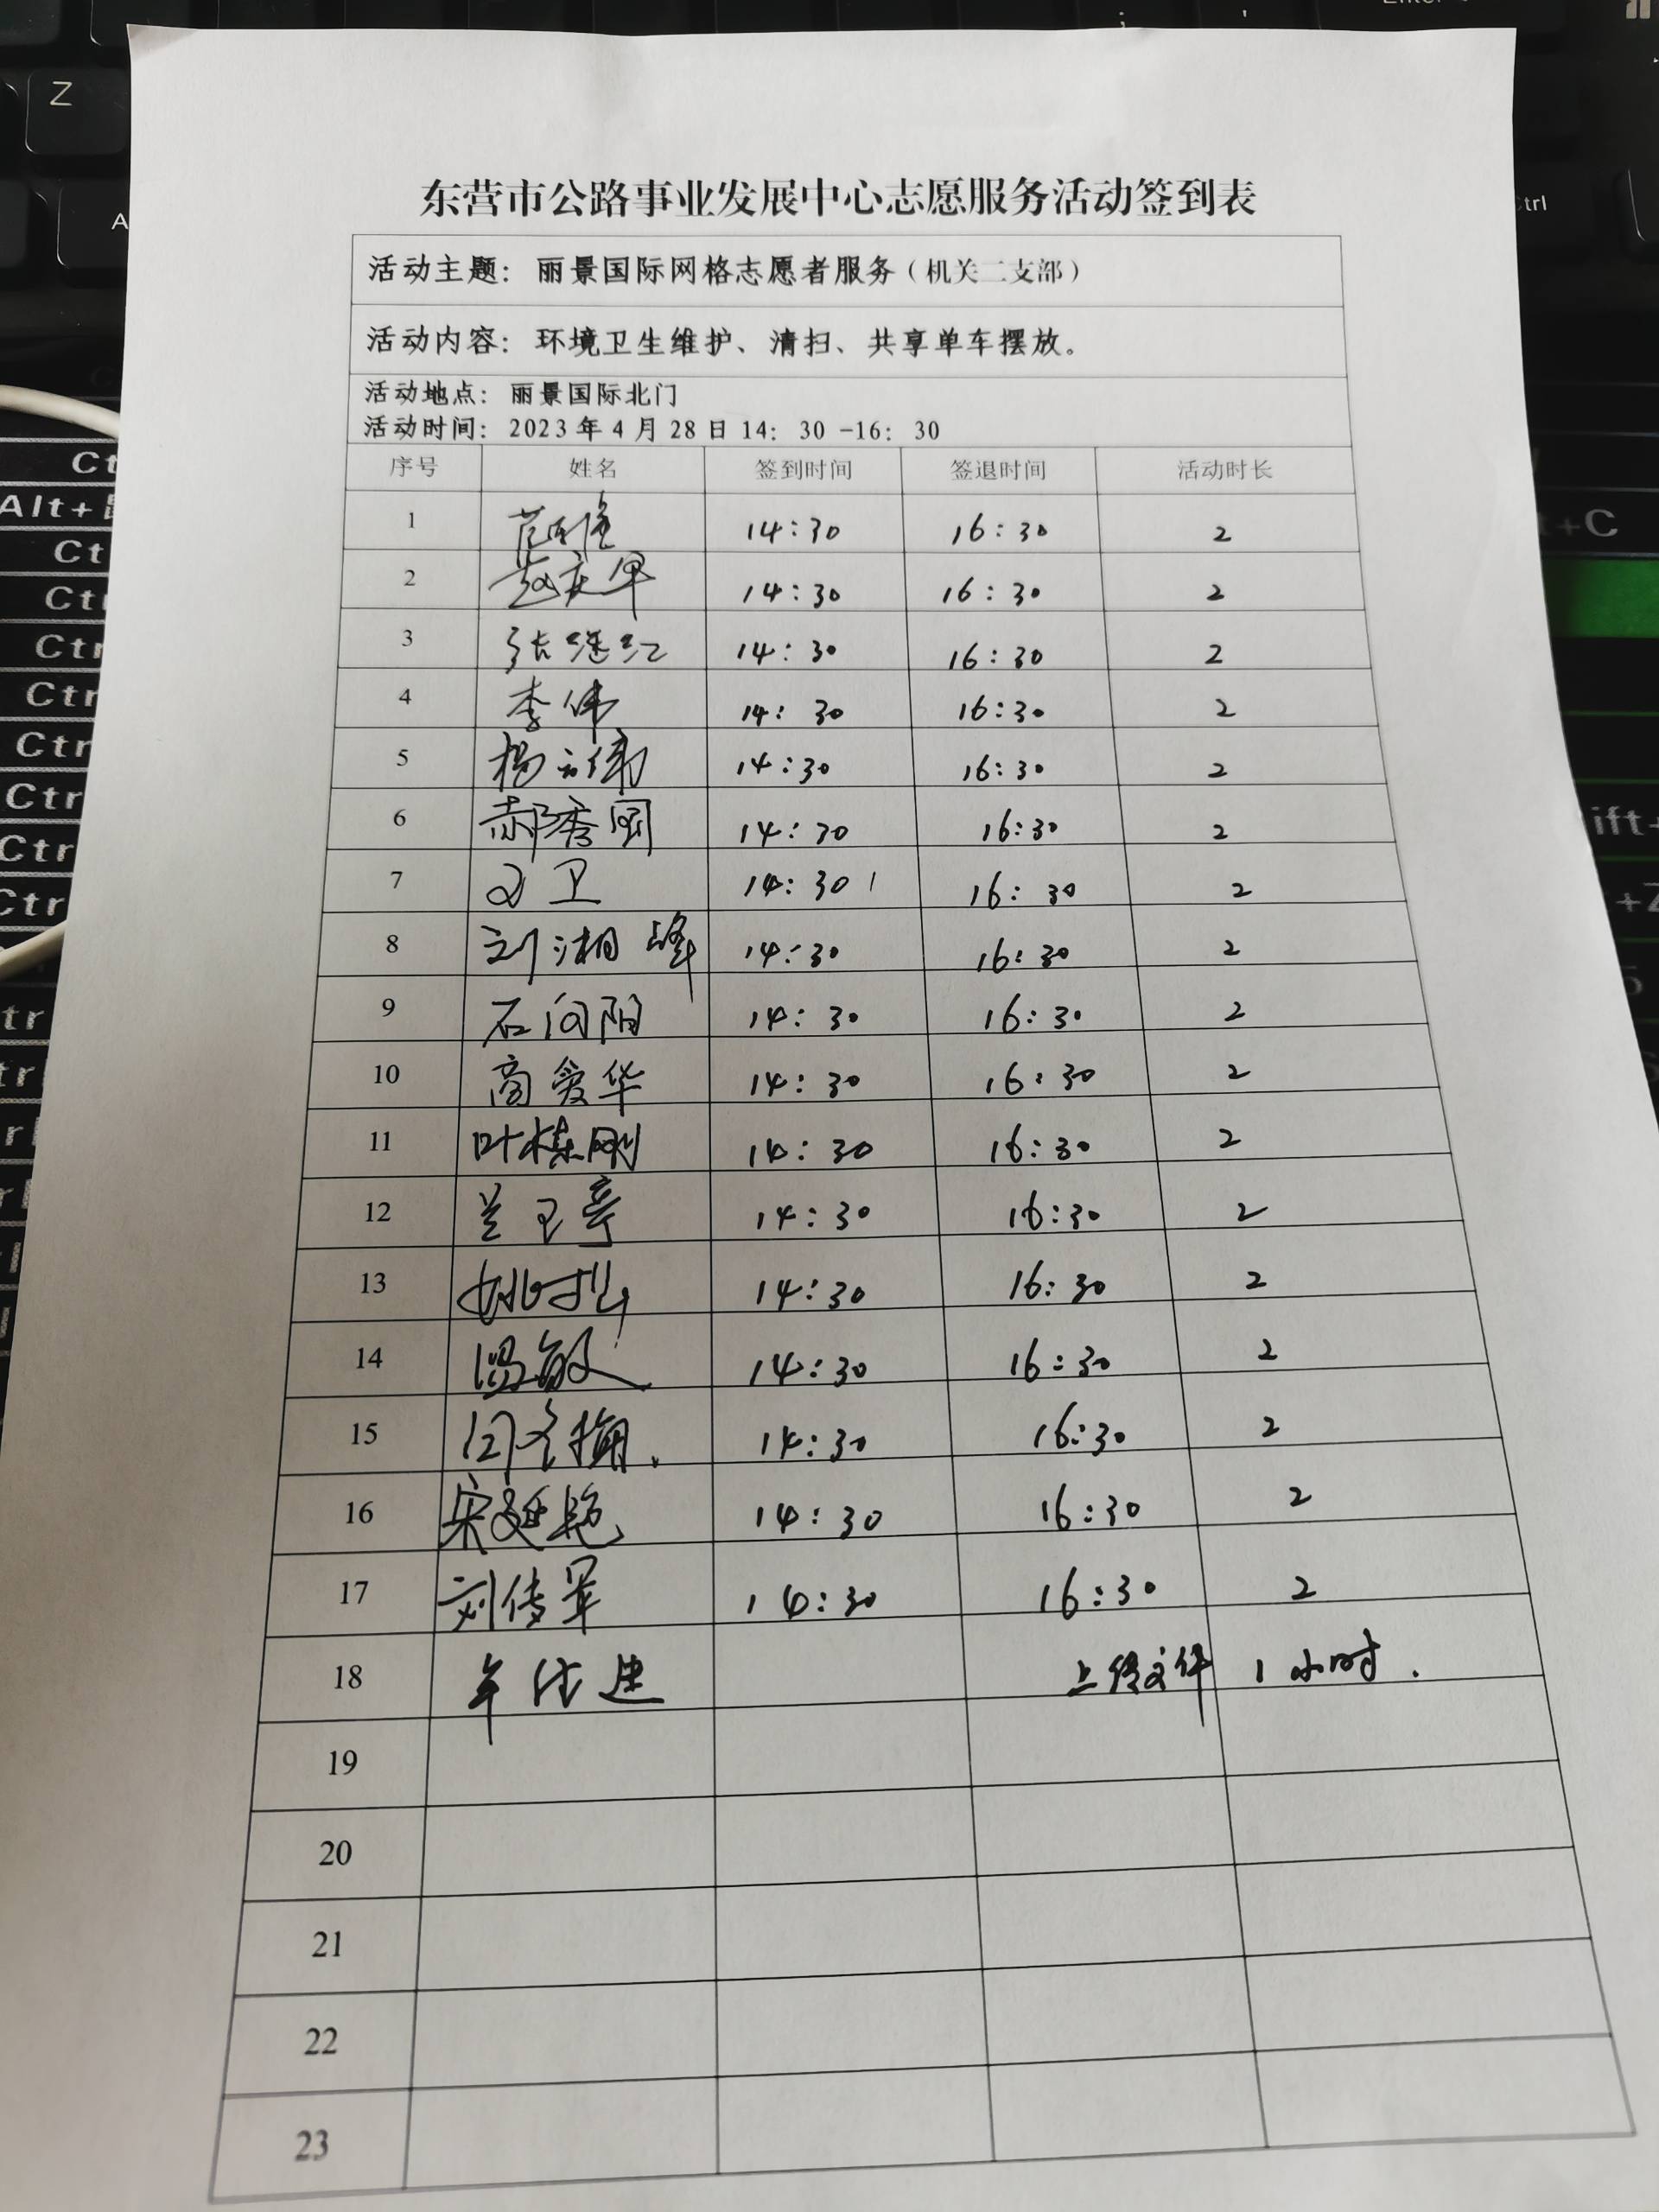 东营市公路事业发展中心志愿服务活动签到表
活动主题：丽景国际网格志愿者服务（机关二支部）
活动内容：环境卫生维护、清扫、共享单车摆放。
活动地点：丽景国际北门
活动时间：2023年4月28日14：30-16：30
序号 姓名 签到时间 签退时间 活动时长
1 14:30 16:30 2
2 14:30 16:30 2
3 张继红 14:30 16:30 2
4 李伟 14:30 16:30 2
5 14:30 16:30 2
6 14:30 16:30 2
7 14:30 16:30 2
8 刘湘峰 14:30 16:30 2
9 石向阳 14:30 16:30 2
10 商爱华 14:30 16:30 2
11 叶栋刚 14:30 16:30 2
12 14:30 16:30 2
13 14:30 16:30 2
14 温敏 14:30 16:30 2
15 14:30 16:30 2
16 宋延艳 14:30 16:30 2
17 刘传军 14:30 16:30 2
18 上传文件 1小时.
19
20
21
22
23